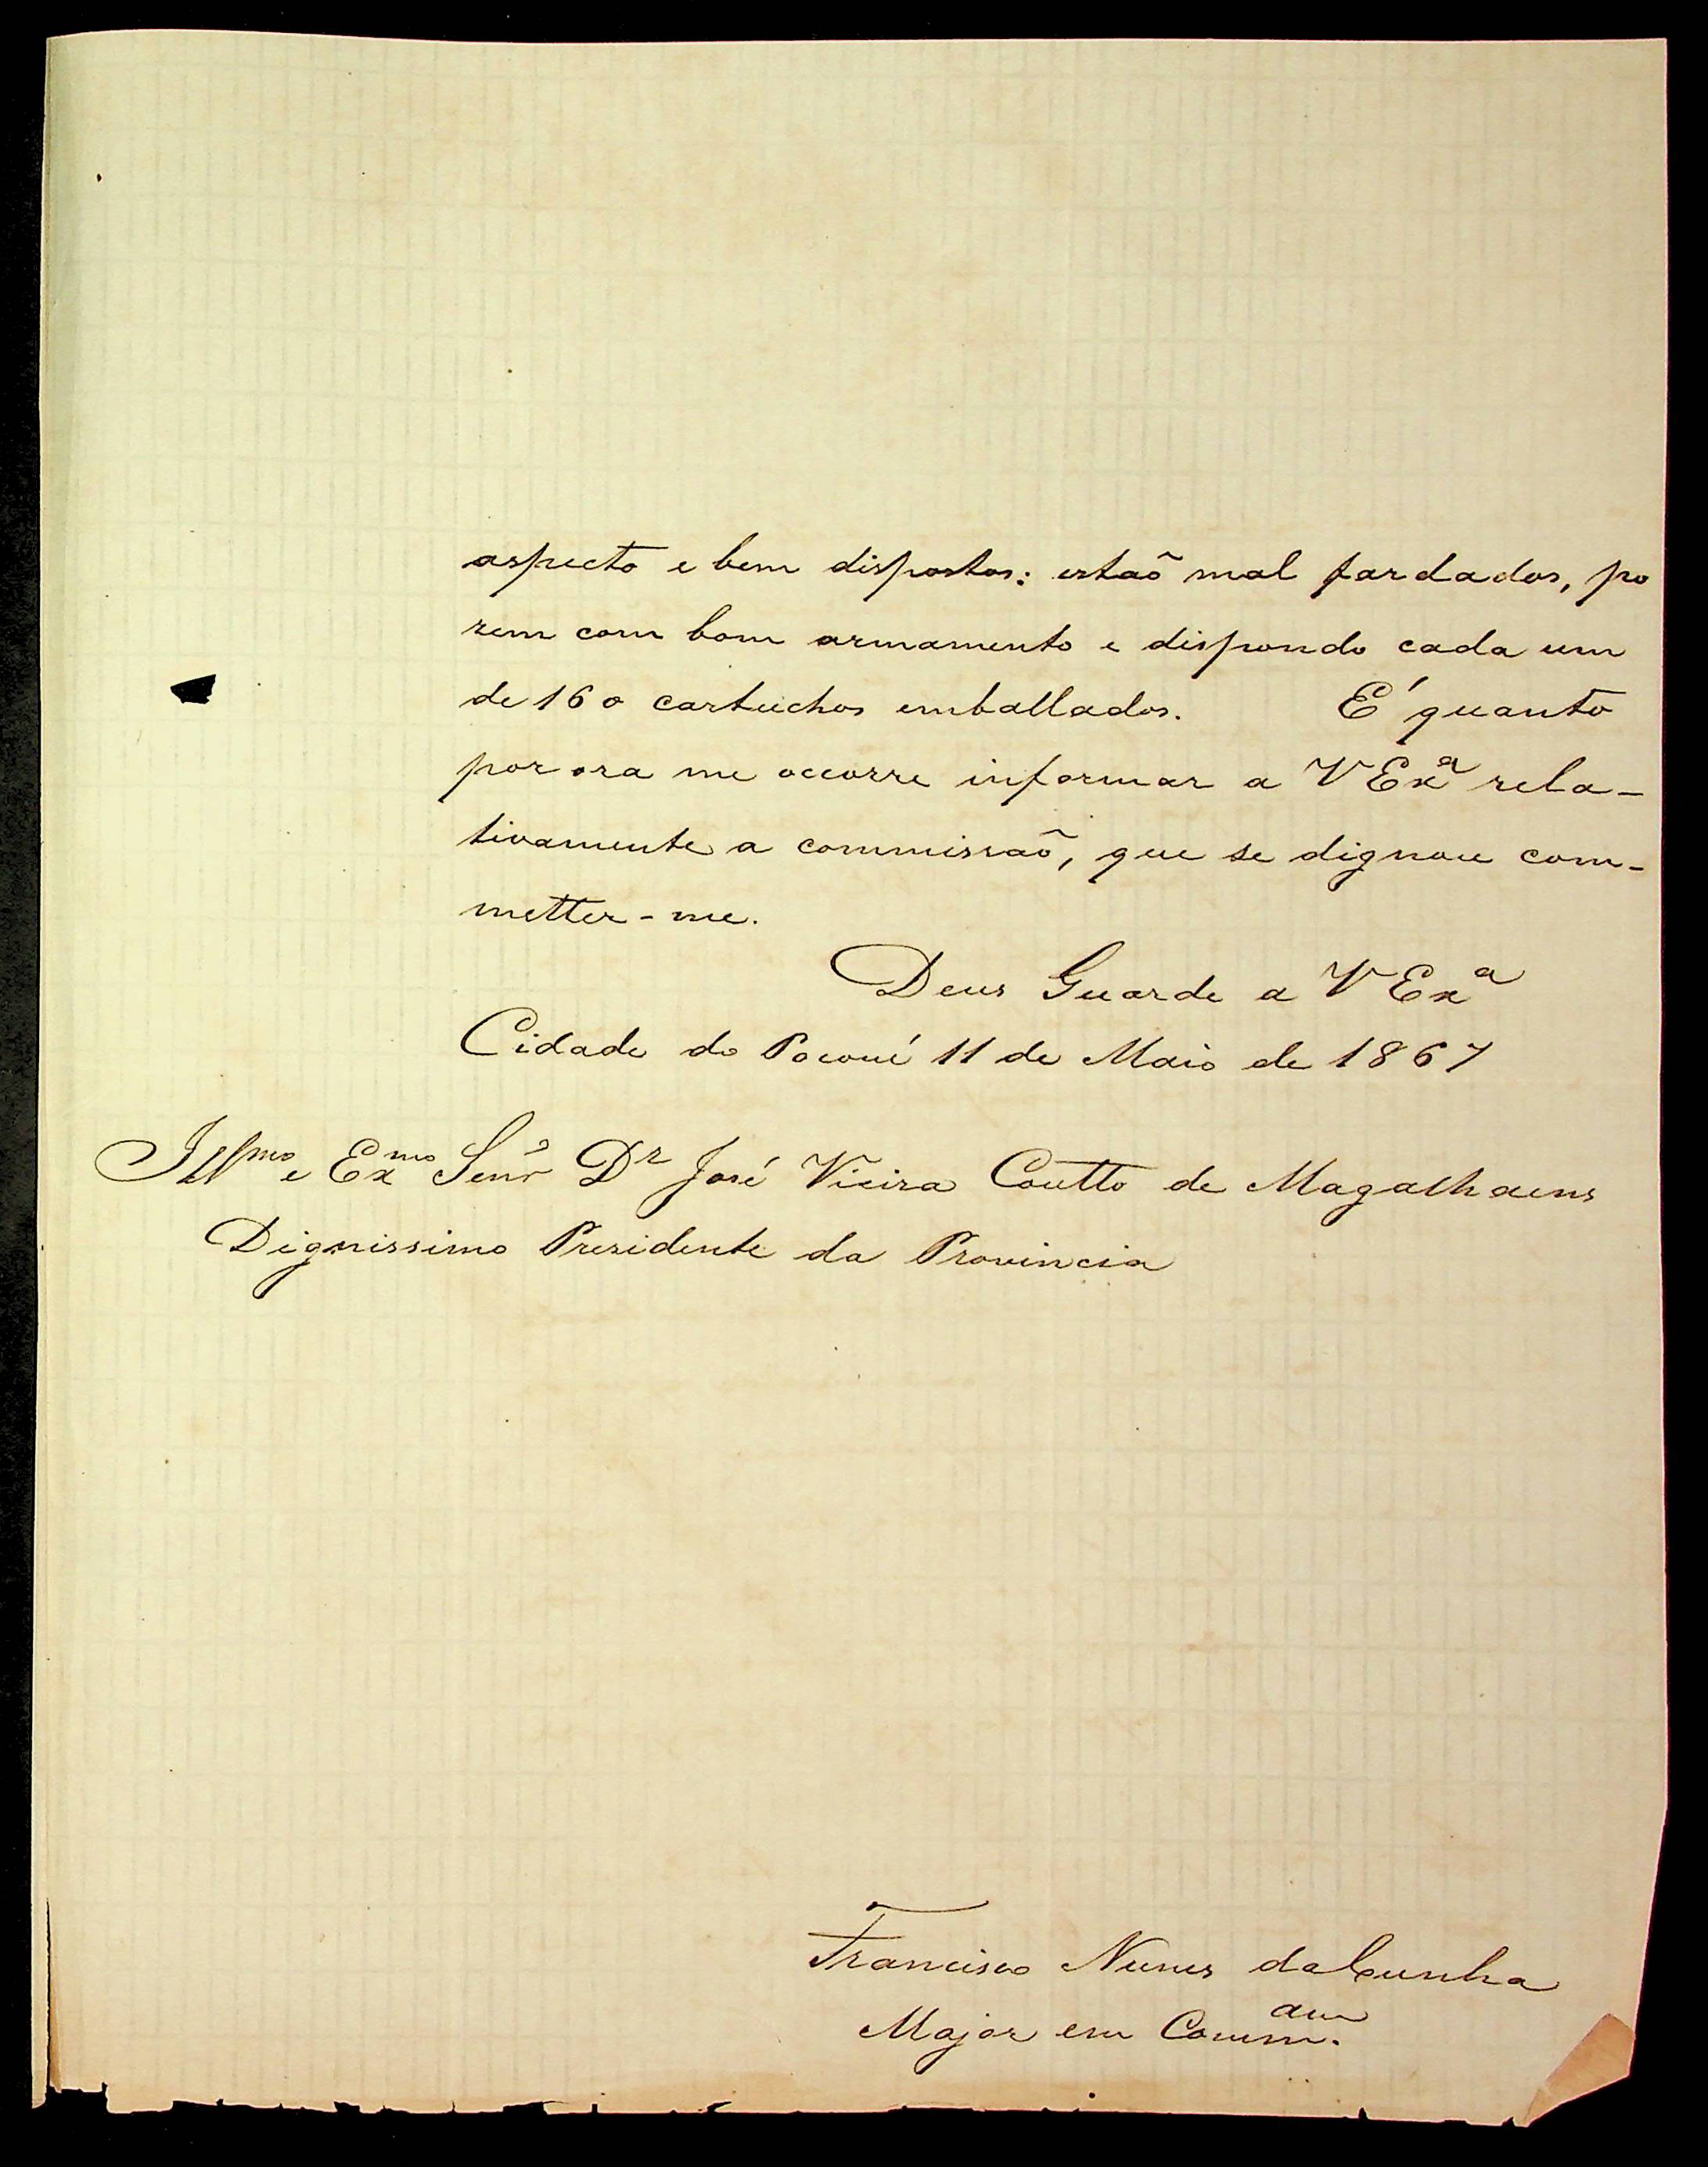 aspecto e bem dispostos: estaõ mal fardados, po
rem com bom armamento e dispondo cada um
de 160 cartuchos emballados. É quanto
por ora me occorre informar a V Exª rela-
tivamente a commissaõ, que se dignou com-
metter-me.
Deus Guarde a V Exª
Cidade do Poconé 11 de Maio de 1867
Illmo e Exmo Senr Dr José Vieira Coutto de Magalhaens
Dignissimo Presidente da Provincia
Francisco Nunes da Cunha
Major em Commam.